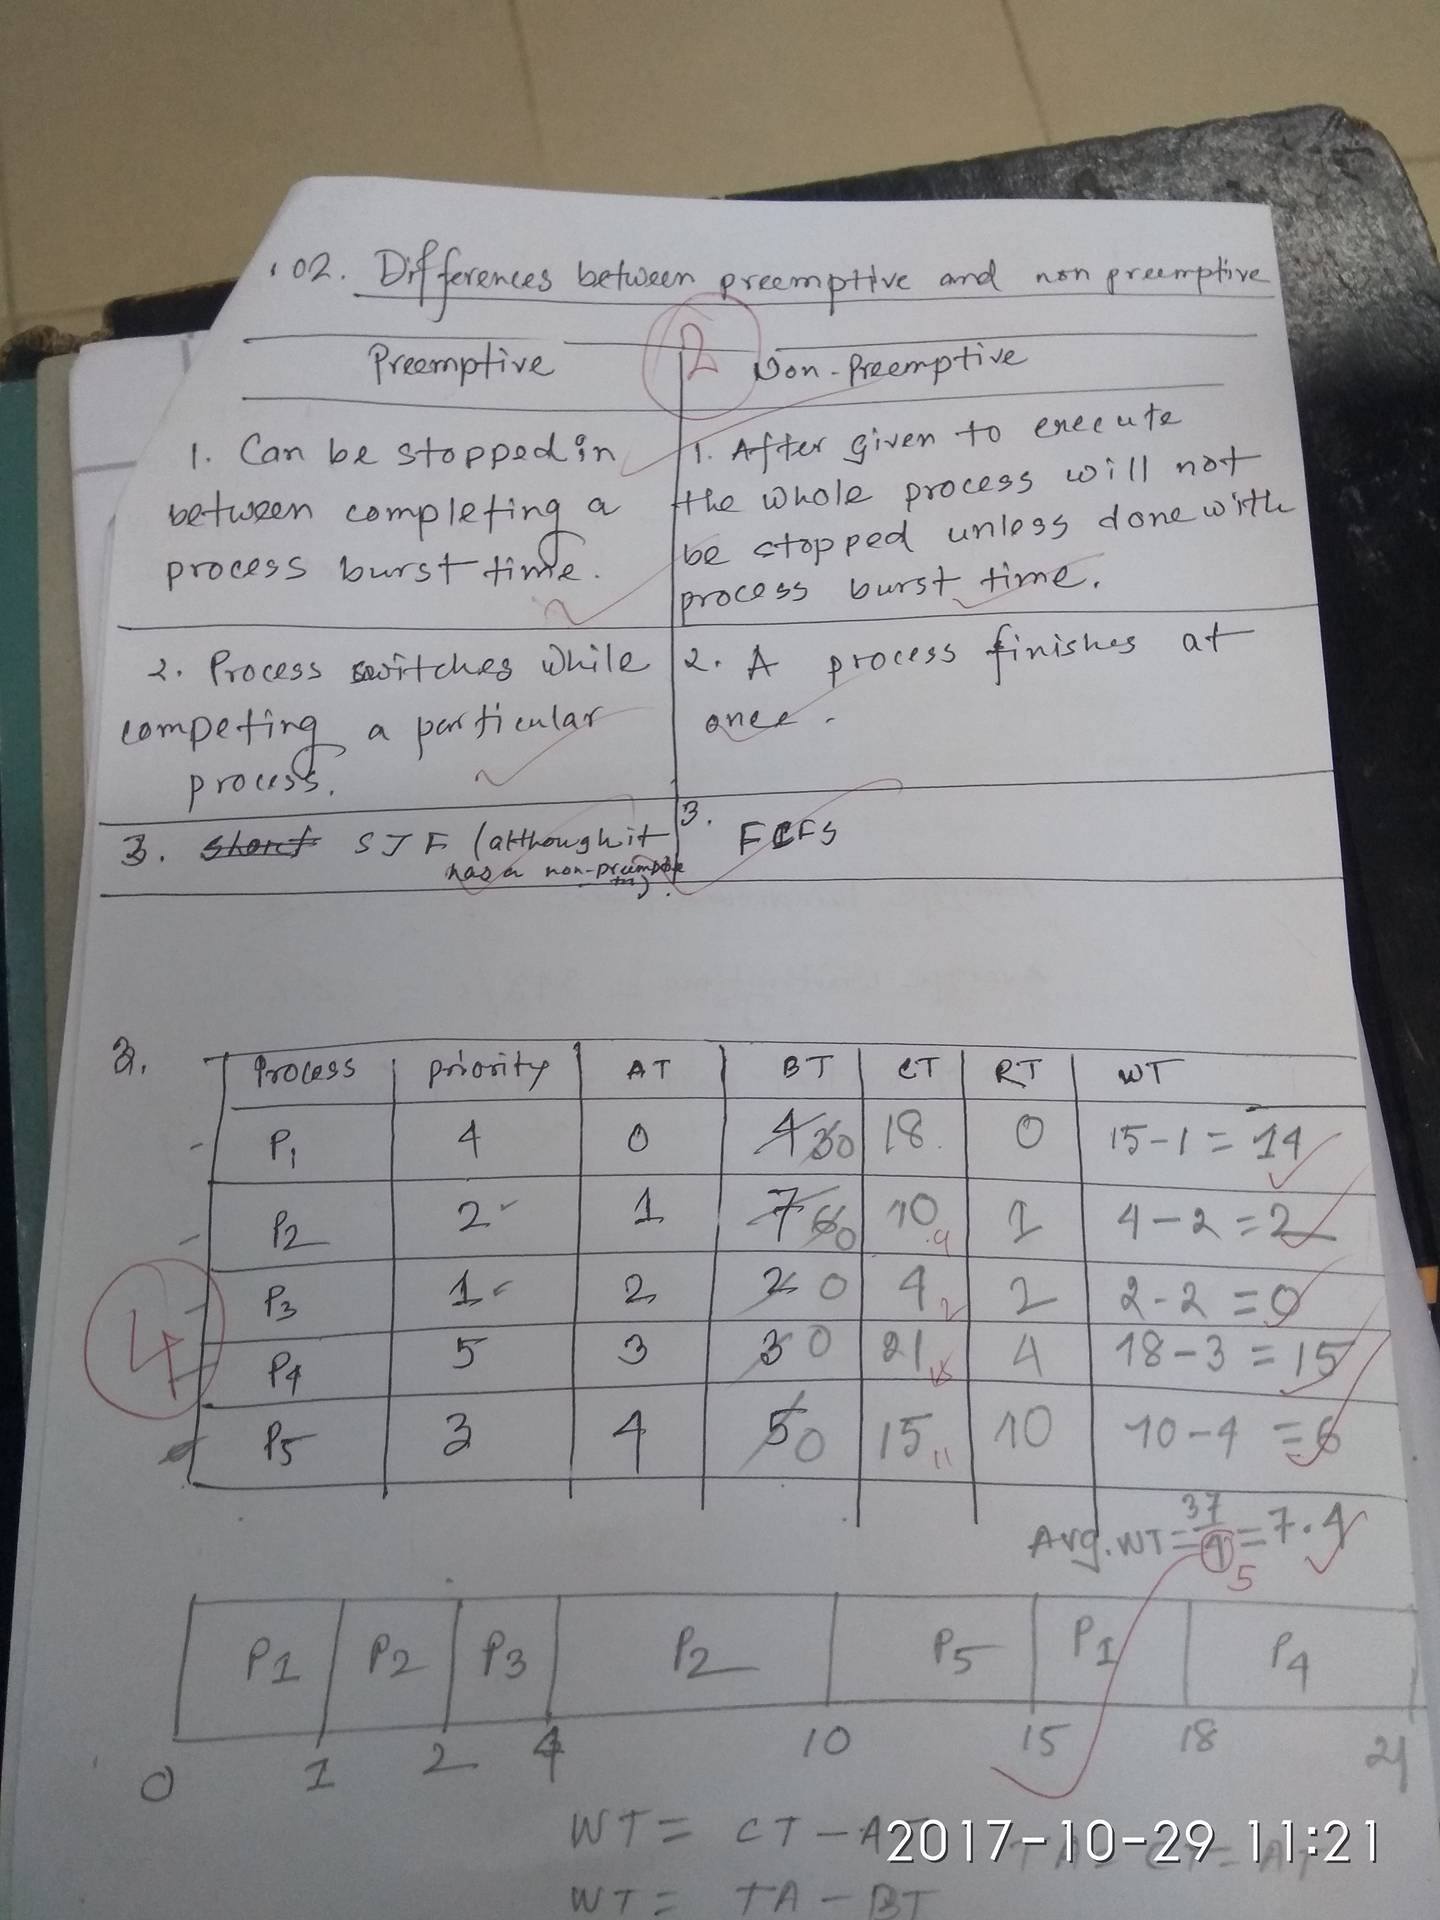 02. Differences between preemptive and non preemptive
2
Preemptive Non-Preemptive
1. Can be stopped in
between completing a
process burst time.
1. After given to execute
the whole process will not
be stopped unless done with
process burst time.
2. Process switches while
competing a particular
process.
2. A process finishes at
once.
3. Short SJF (although it
has a non-preemptive
3. FCFS
3.
Process priority AT BT CT RT WT
P1 4 0 4 3 0 18 0 15-1 = 14
P2 2 1 7 6 0 10 9 1 4-2 = 2
P3 1 2 2 0 4 2 2 2-2 = 0
P4 5 3 3 0 21 18 4 18-3 = 15
P5 3 4 5 0 15 11 10 10-4 = 6
4
Avg. WT = 37/4 = 7.4
5
P1 P2 P3 P2 P5 P1 P4
0 1 2 4 10 15 18 21
WT = CT - AT
2017-10-29 11:21
WT = TA - BT